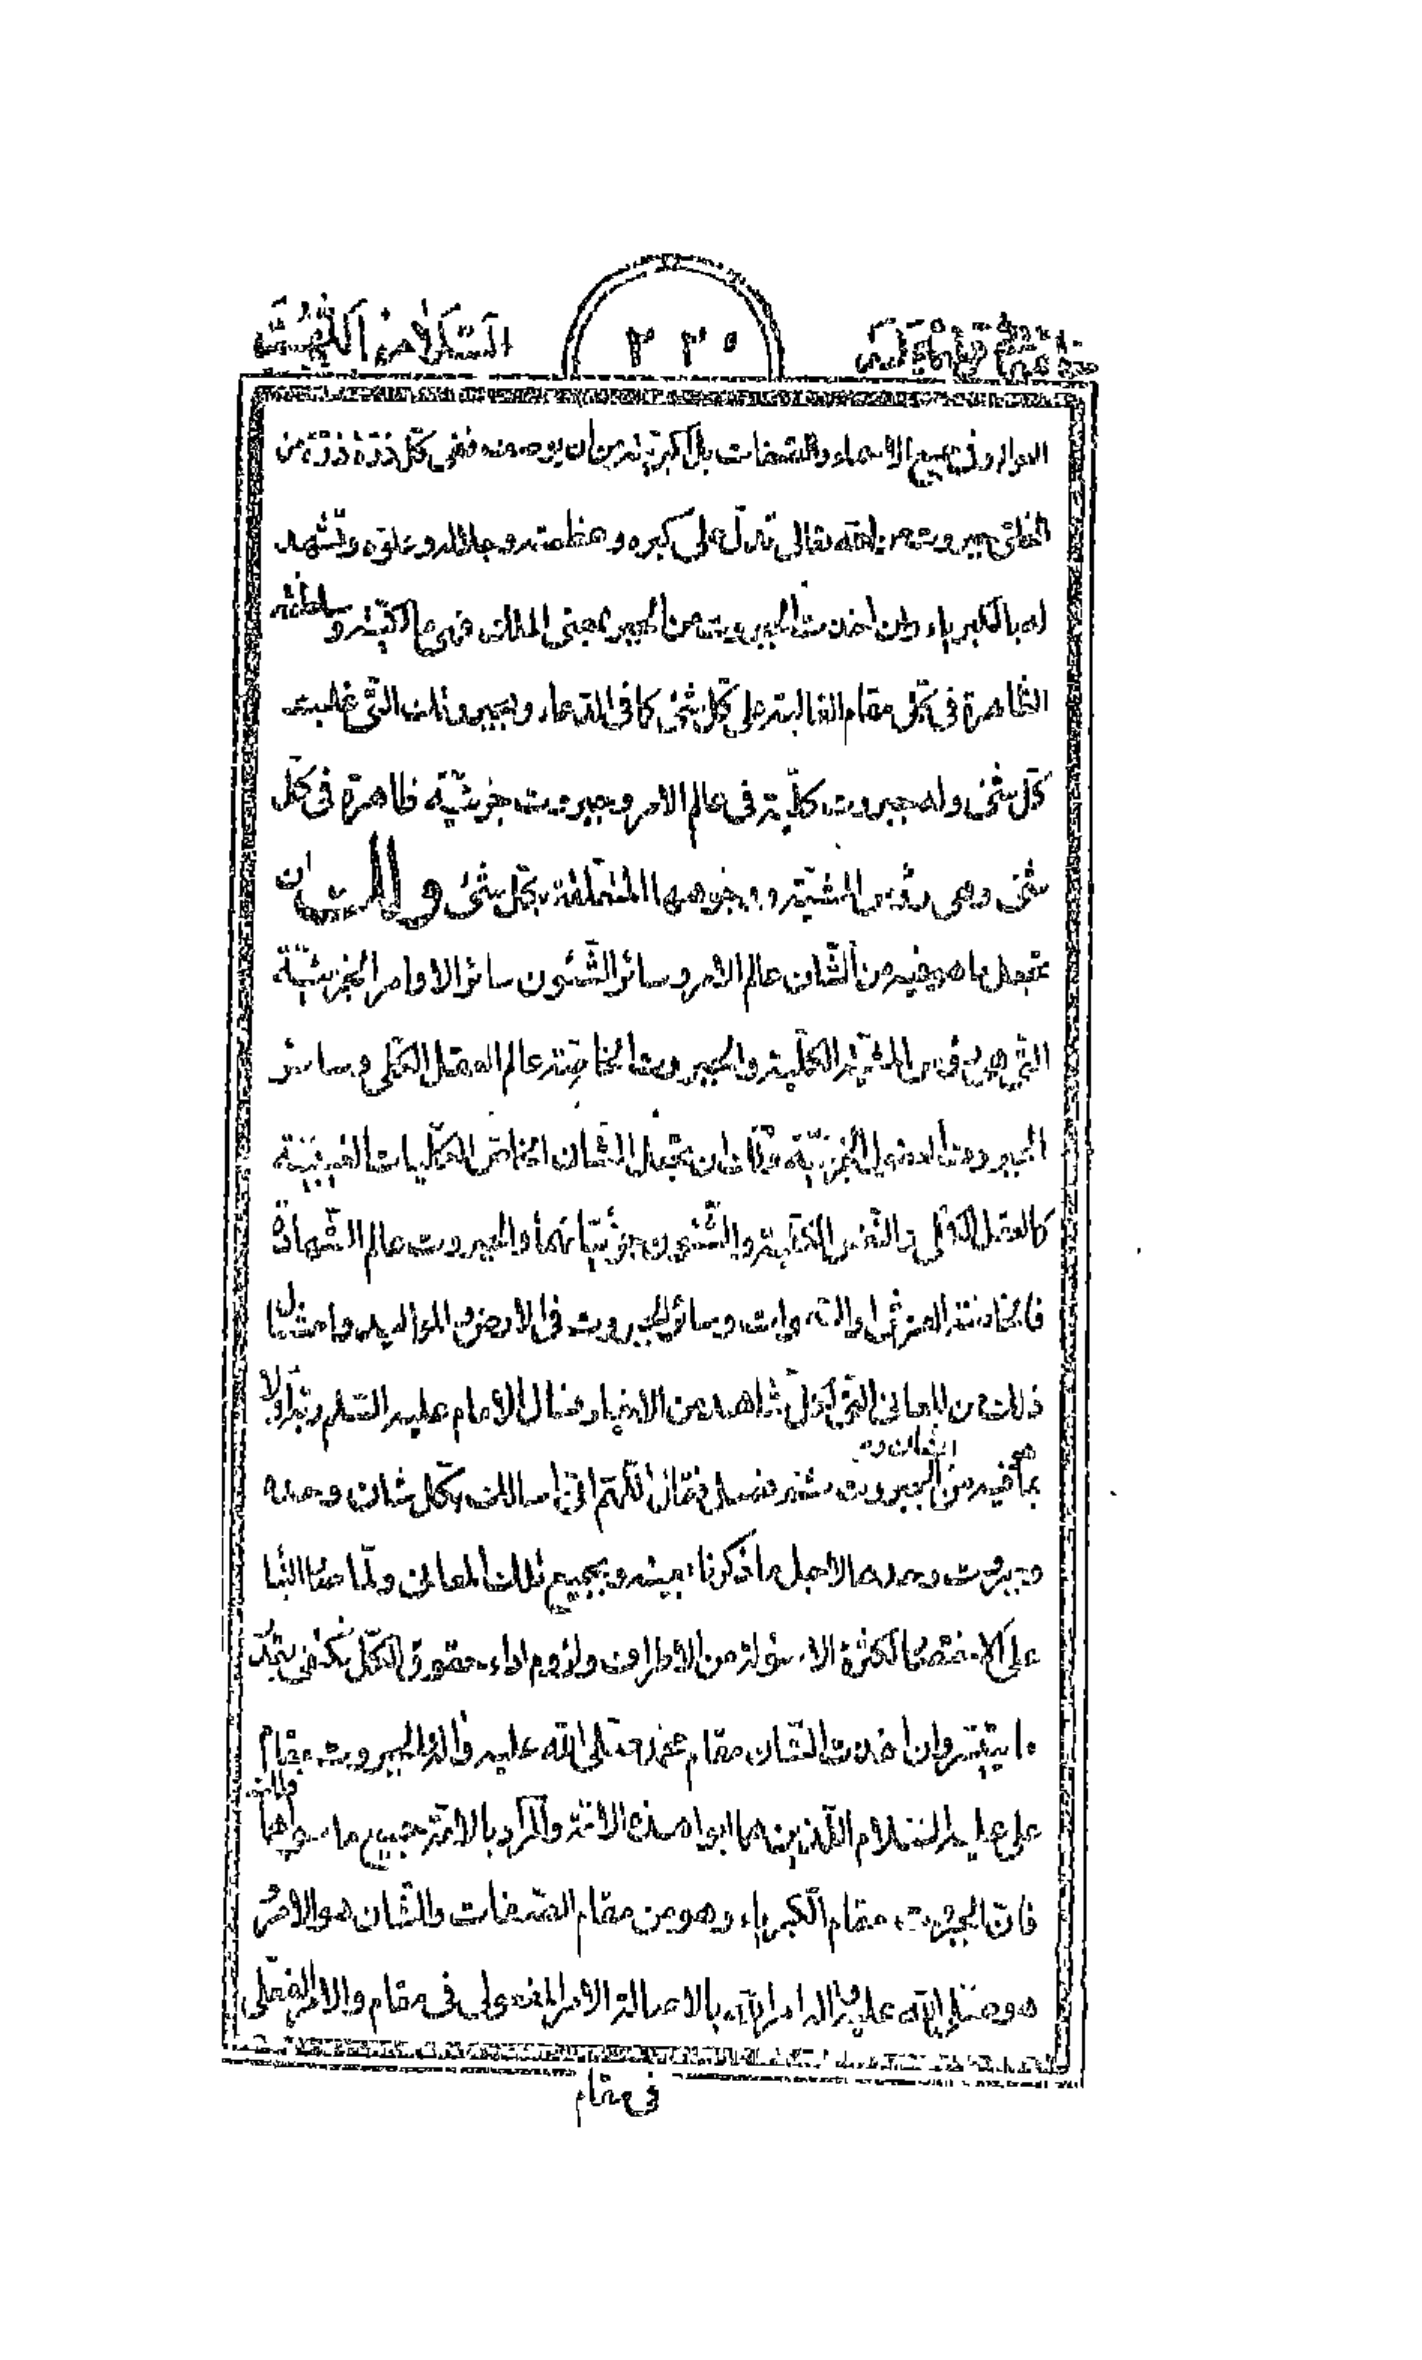 ٢٢٥
وفى جميع الاسماء والصفات بل اكبريته من ان يوصف ففى كل ذرة ذرة من
الخلق جبروت من الله تعالى تدل على كبره وعظمته وجلاله وعلوه وتشهد
له بالكبرياء وان اخذت الجبروت من الجبر بمعنى الملك فهى وسلطنته
الظاهرة فى كل مقام الغالبة على كل شئ كما فى الدعاء وبجبروتك التى غلبت
كل شئ وله جبروت كلية فى عالم الامر وجبروت جزئية ظاهرة فى كل
شئ وهى رؤس المشية ووجوهها المتعلقة بكل شئ ولك ان
تجعل ما هو فيه من الشان عالم الامر وسائر الشئون سائر الاوامر الجزئية
التى هى رؤس المشية الكلية والجبروت الخاصة عالم العقل الكلى وسائر
الجبروت العقول الجزئية ولك ان تجعل الشان الخاص الكليات الغيبية
كالعقل الكلى والنفس الكلية والشئون جزئياتها والجبروت عالم الشهادة
فالخاصة العرش والسموات وسائر الجبروت فى الارض والمواليد وامثال
ذلك من المعانى التى لكل شاهد من الاخبار فسال الامام عليه السلم ربه اولا
بما هو فيه من الشان والجبروت ثم فصل فقال اللهم انى اسالك بكل شان وحده
وجبروت وحدها لاجل ما ذكرنا وبجميع تلك المعانى ولما كان البنا
على الاختصار لكثرة الاسئولة من الاطراف ولزوم اداء حقوق الكل نكتفى
ما يتيسر وان اخذت الشان مقام محمد صلى الله عليه واله والجبروت مقام
على عليه السلام اللذين هما ابوا هذه الامة والمراد بالامة جميع ما سواهما
فان الجبروت مقام الكبرياء وهو من مقام الصفات والشان هو الامر
هو صلى الله عليه واله امر الله بالاصالة الامر المفعولى فى مقام والامر الفعلى
فى مقام